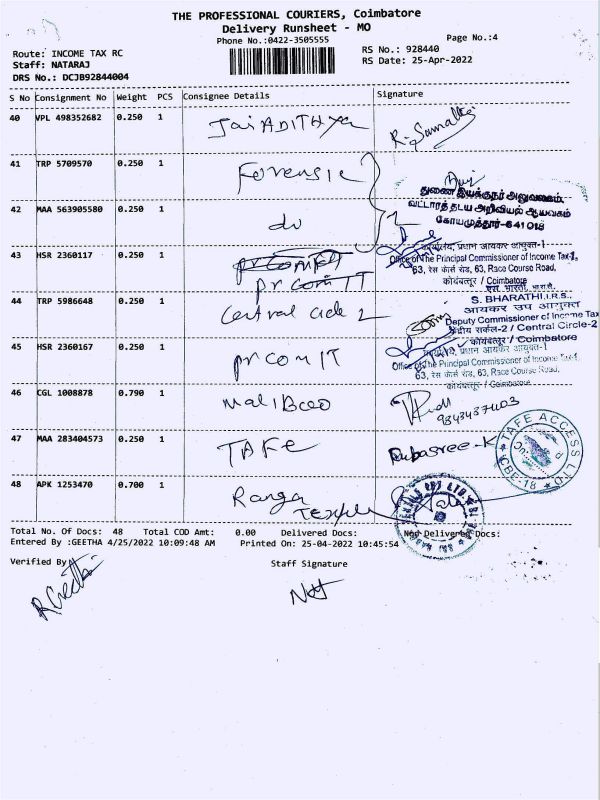 THE PROFESSIONAL COURIERS, Coimbatore
Delivery Runsheet - MO
Phone No.:0422-3505555
Page No.:4
Route: INCOME TAX RC
RS No.: 928440
Staff: NATARAJ
RS Date: 25-Apr-2022
DRS No.: DCJB92844004
S No Consignment No Weight PCS Consignee Details Signature
40 VPL 498352682 0.250 1 Jai ADITHYa
41 TRP 5709570 0.250 1 Forensic
துணை இயக்குநர் அலுவலகம்,
வட்டாரத் தடய அறிவியல் ஆய்வகம்
கோயமுத்தூர்-641018
42 MAA 563905580 0.250 1 do
43 HSR 2360117 0.250 1 pr com IT
कार्यालय, प्रधान आयकर आयुक्त-1
Office of The Principal Commissioner of Income Tax-1,
63, रेस कोर्स रोड, 63, Race Course Road,
कोयंबत्तूर / Coimbatore
44 TRP 5986648 0.250 1 Central circle 2
S. BHARATHI,I.R.S.,
आयकर उप आयुक्त
Deputy Commissioner of Income Tax
केंद्रीय सर्कल-2 / Central Circle-2
कोयंबत्तूर / Coimbatore
45 HSR 2360167 0.250 1 pr com IT
कार्यालय, प्रधान आयकर आयुक्त-1
Office of The Principal Commissioner of Income Tax-1,
63, रेस कोर्स रोड, 63, Race Course Road,
कोयंबत्तूर / Coimbatore
46 CGL 1008878 0.790 1
47 MAA 283404573 0.250 1 TAFE
Rubasree-K
TAFE ACCESS LTD
CBE-18
48 APK 1253470 0.700 1 Ranga
Textile
Total No. Of Docs: 48 Total COD Amt: 0.00 Delivered Docs: Not Delivered Docs:
Entered By :GEETHA 4/25/2022 10:09:48 AM Printed On: 25-04-2022 10:45:54
Verified By
Staff Signature